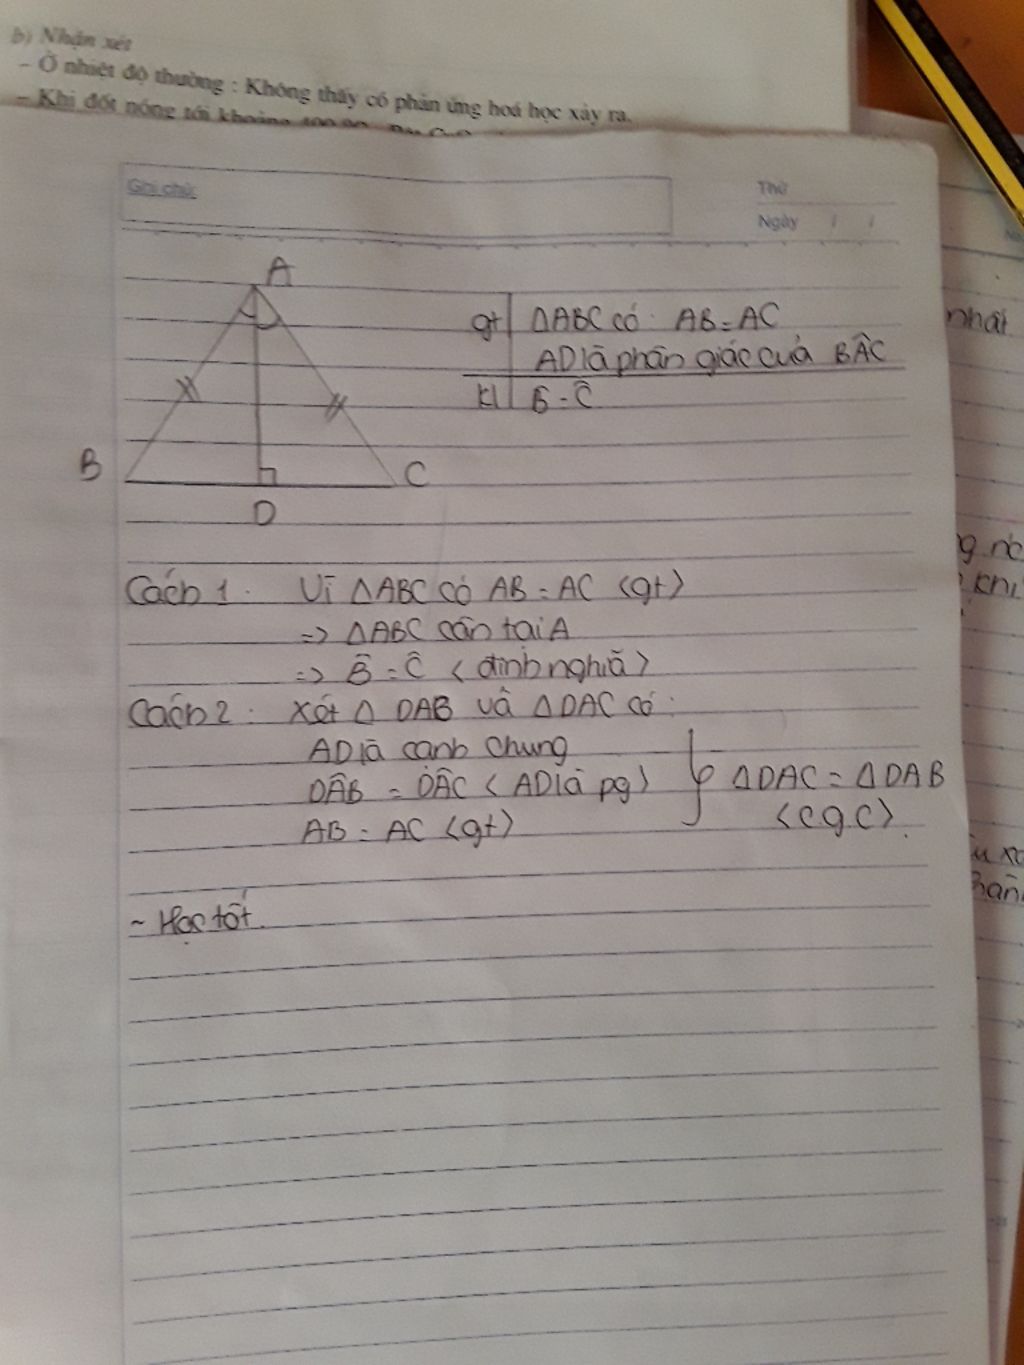 b) Nhận xét
- Ở nhiệt độ thường : Không thấy có phản ứng hoá học xảy ra.
- Khi đốt nóng tới khoảng
Ghi chú:
Thứ
Ngày / /
A
gt ΔABC có: AB = AC
AD là phân giác của BÂC
kl B̂ = Ĉ
B
C
D
nhất
Cách 1: Vì ΔABC có AB = AC (gt)
=> ΔABC cân tại A
=> B̂ = Ĉ (định nghĩa)
Cách 2: Xét Δ DAB và ΔDAC có:
AD là cạnh chung
DÂB = DÂC (AD là pg)
AB = AC (gt)
ΔDAC = ΔDAB
(c.g.c).
khi
~ Học tốt.